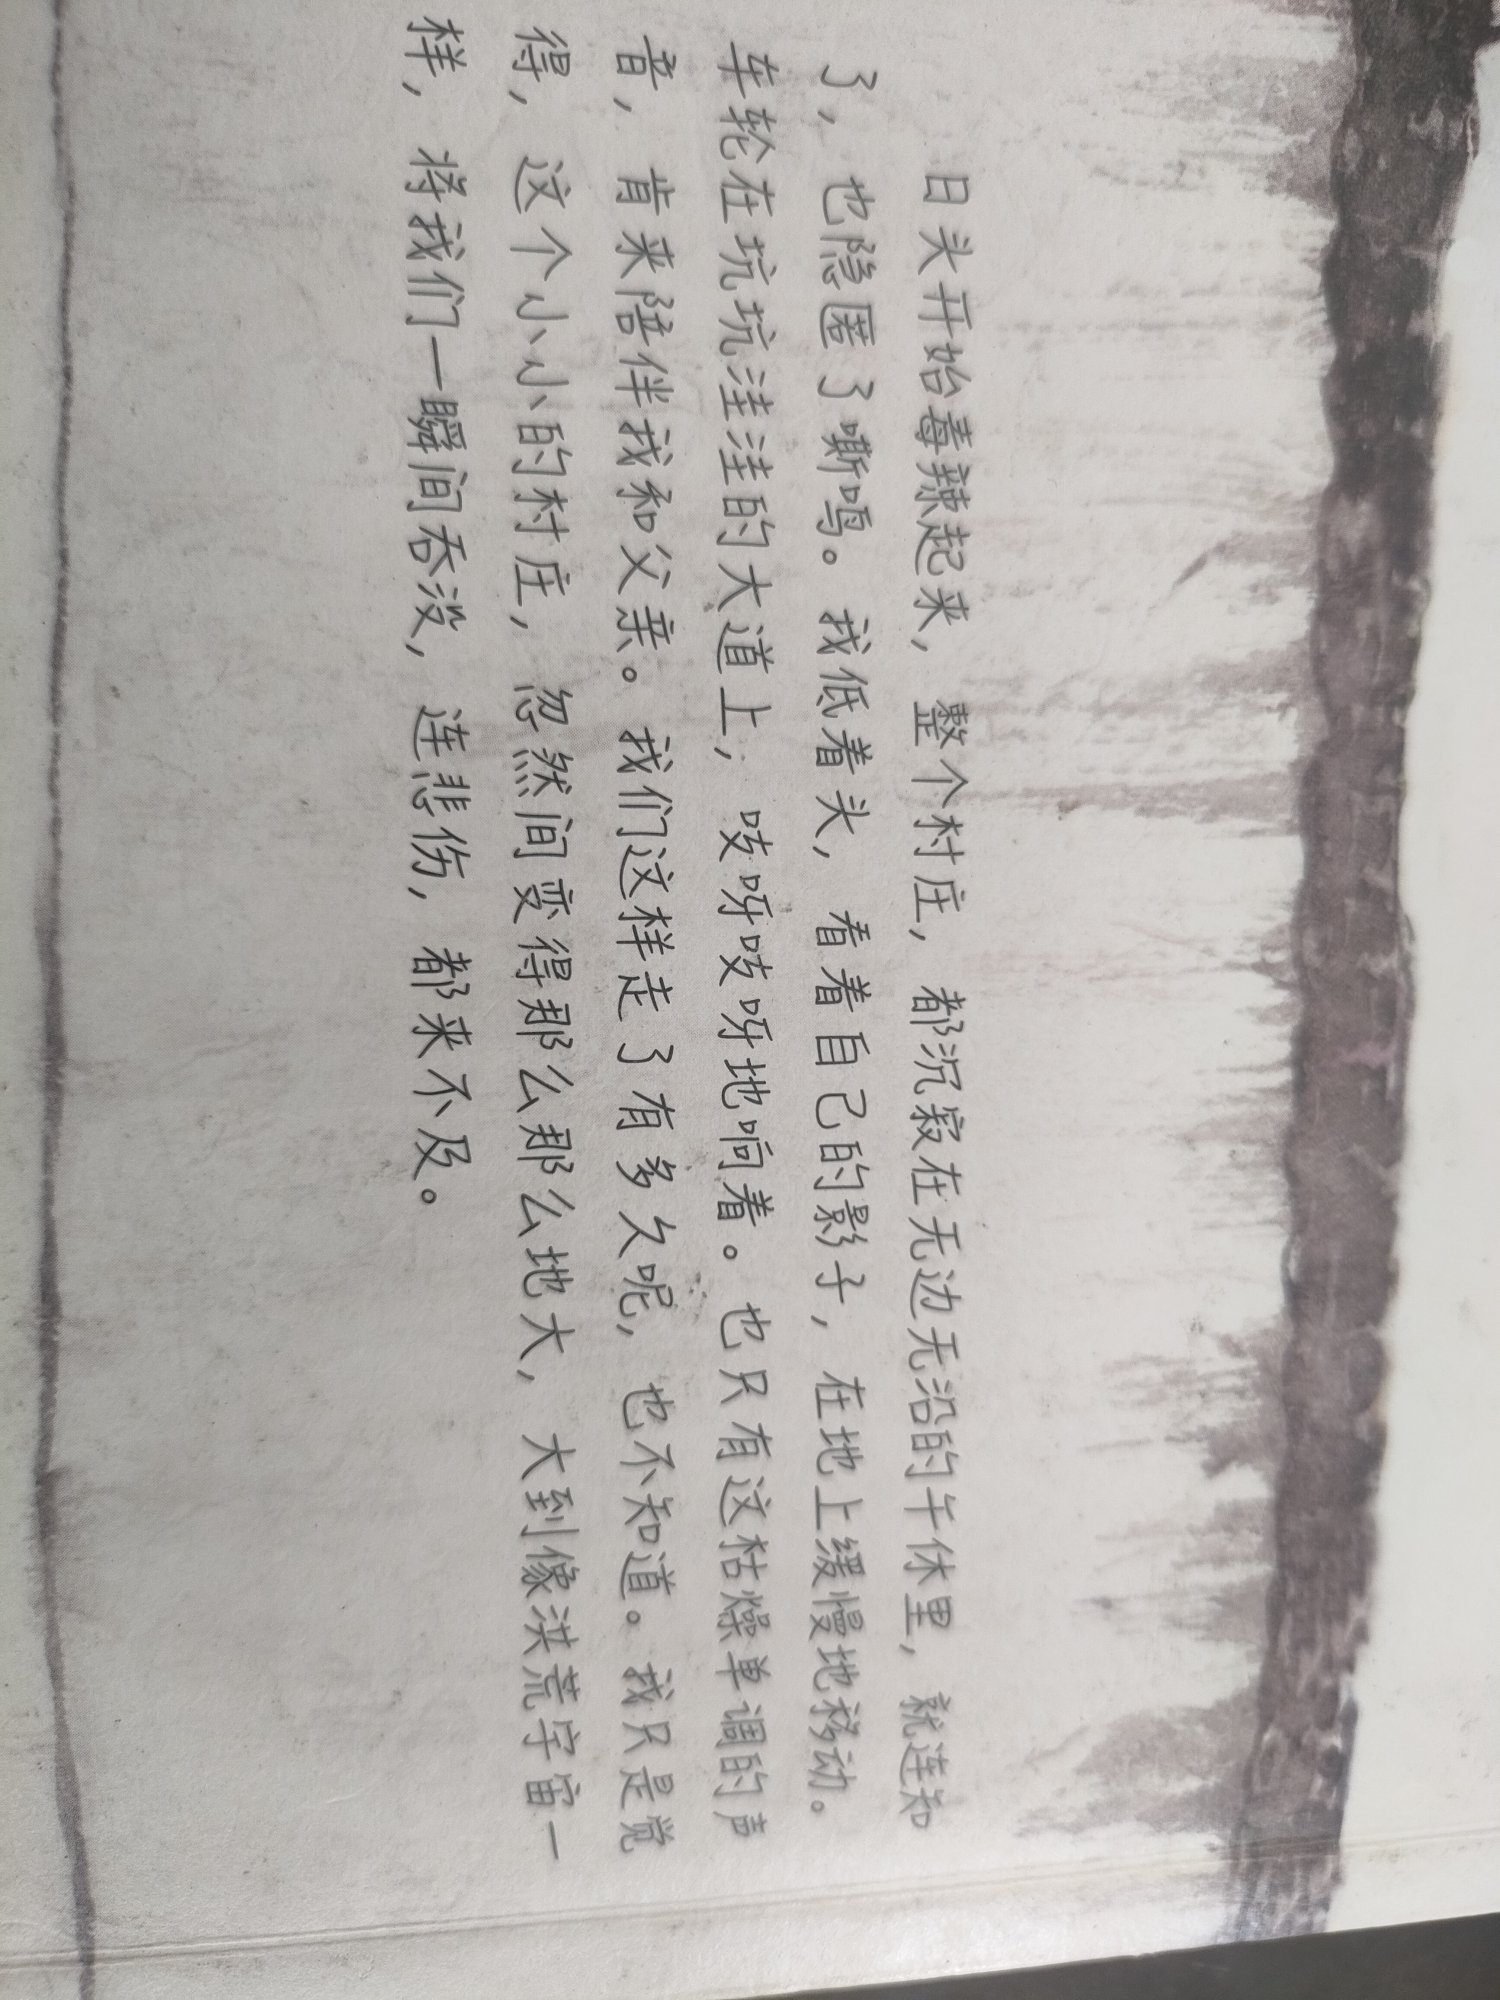 日头开始毒辣起来，整个村庄，都沉寂在无边无沿的午休里，就连知
了，也隐匿了嘶鸣。我低着头，看着自己的影子，在地上缓慢地移动。
车轮在坑坑洼洼的大道上，吱呀吱呀地响着。也只有这枯燥单调的声
音，肯来陪伴我和父亲。我们这样走了有多久呢，也不知道。我只是觉
得，这个小小的村庄，忽然间变得那么那么地大，大到像洪荒宇宙一
样，将我们一瞬间吞没，连悲伤，都来不及。